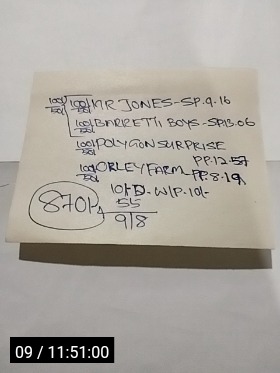 100/50 100/50 MR JONES-SP.9.16
100/50 BARRETTI BOYS-SP.13.06
100/50 POLYGON SURPRISE
PP.12.57
100/50 ORLEY FARM-PP.8.19
101-D-W/P.101-
870/- 55
9/8
09 / 11:51:00